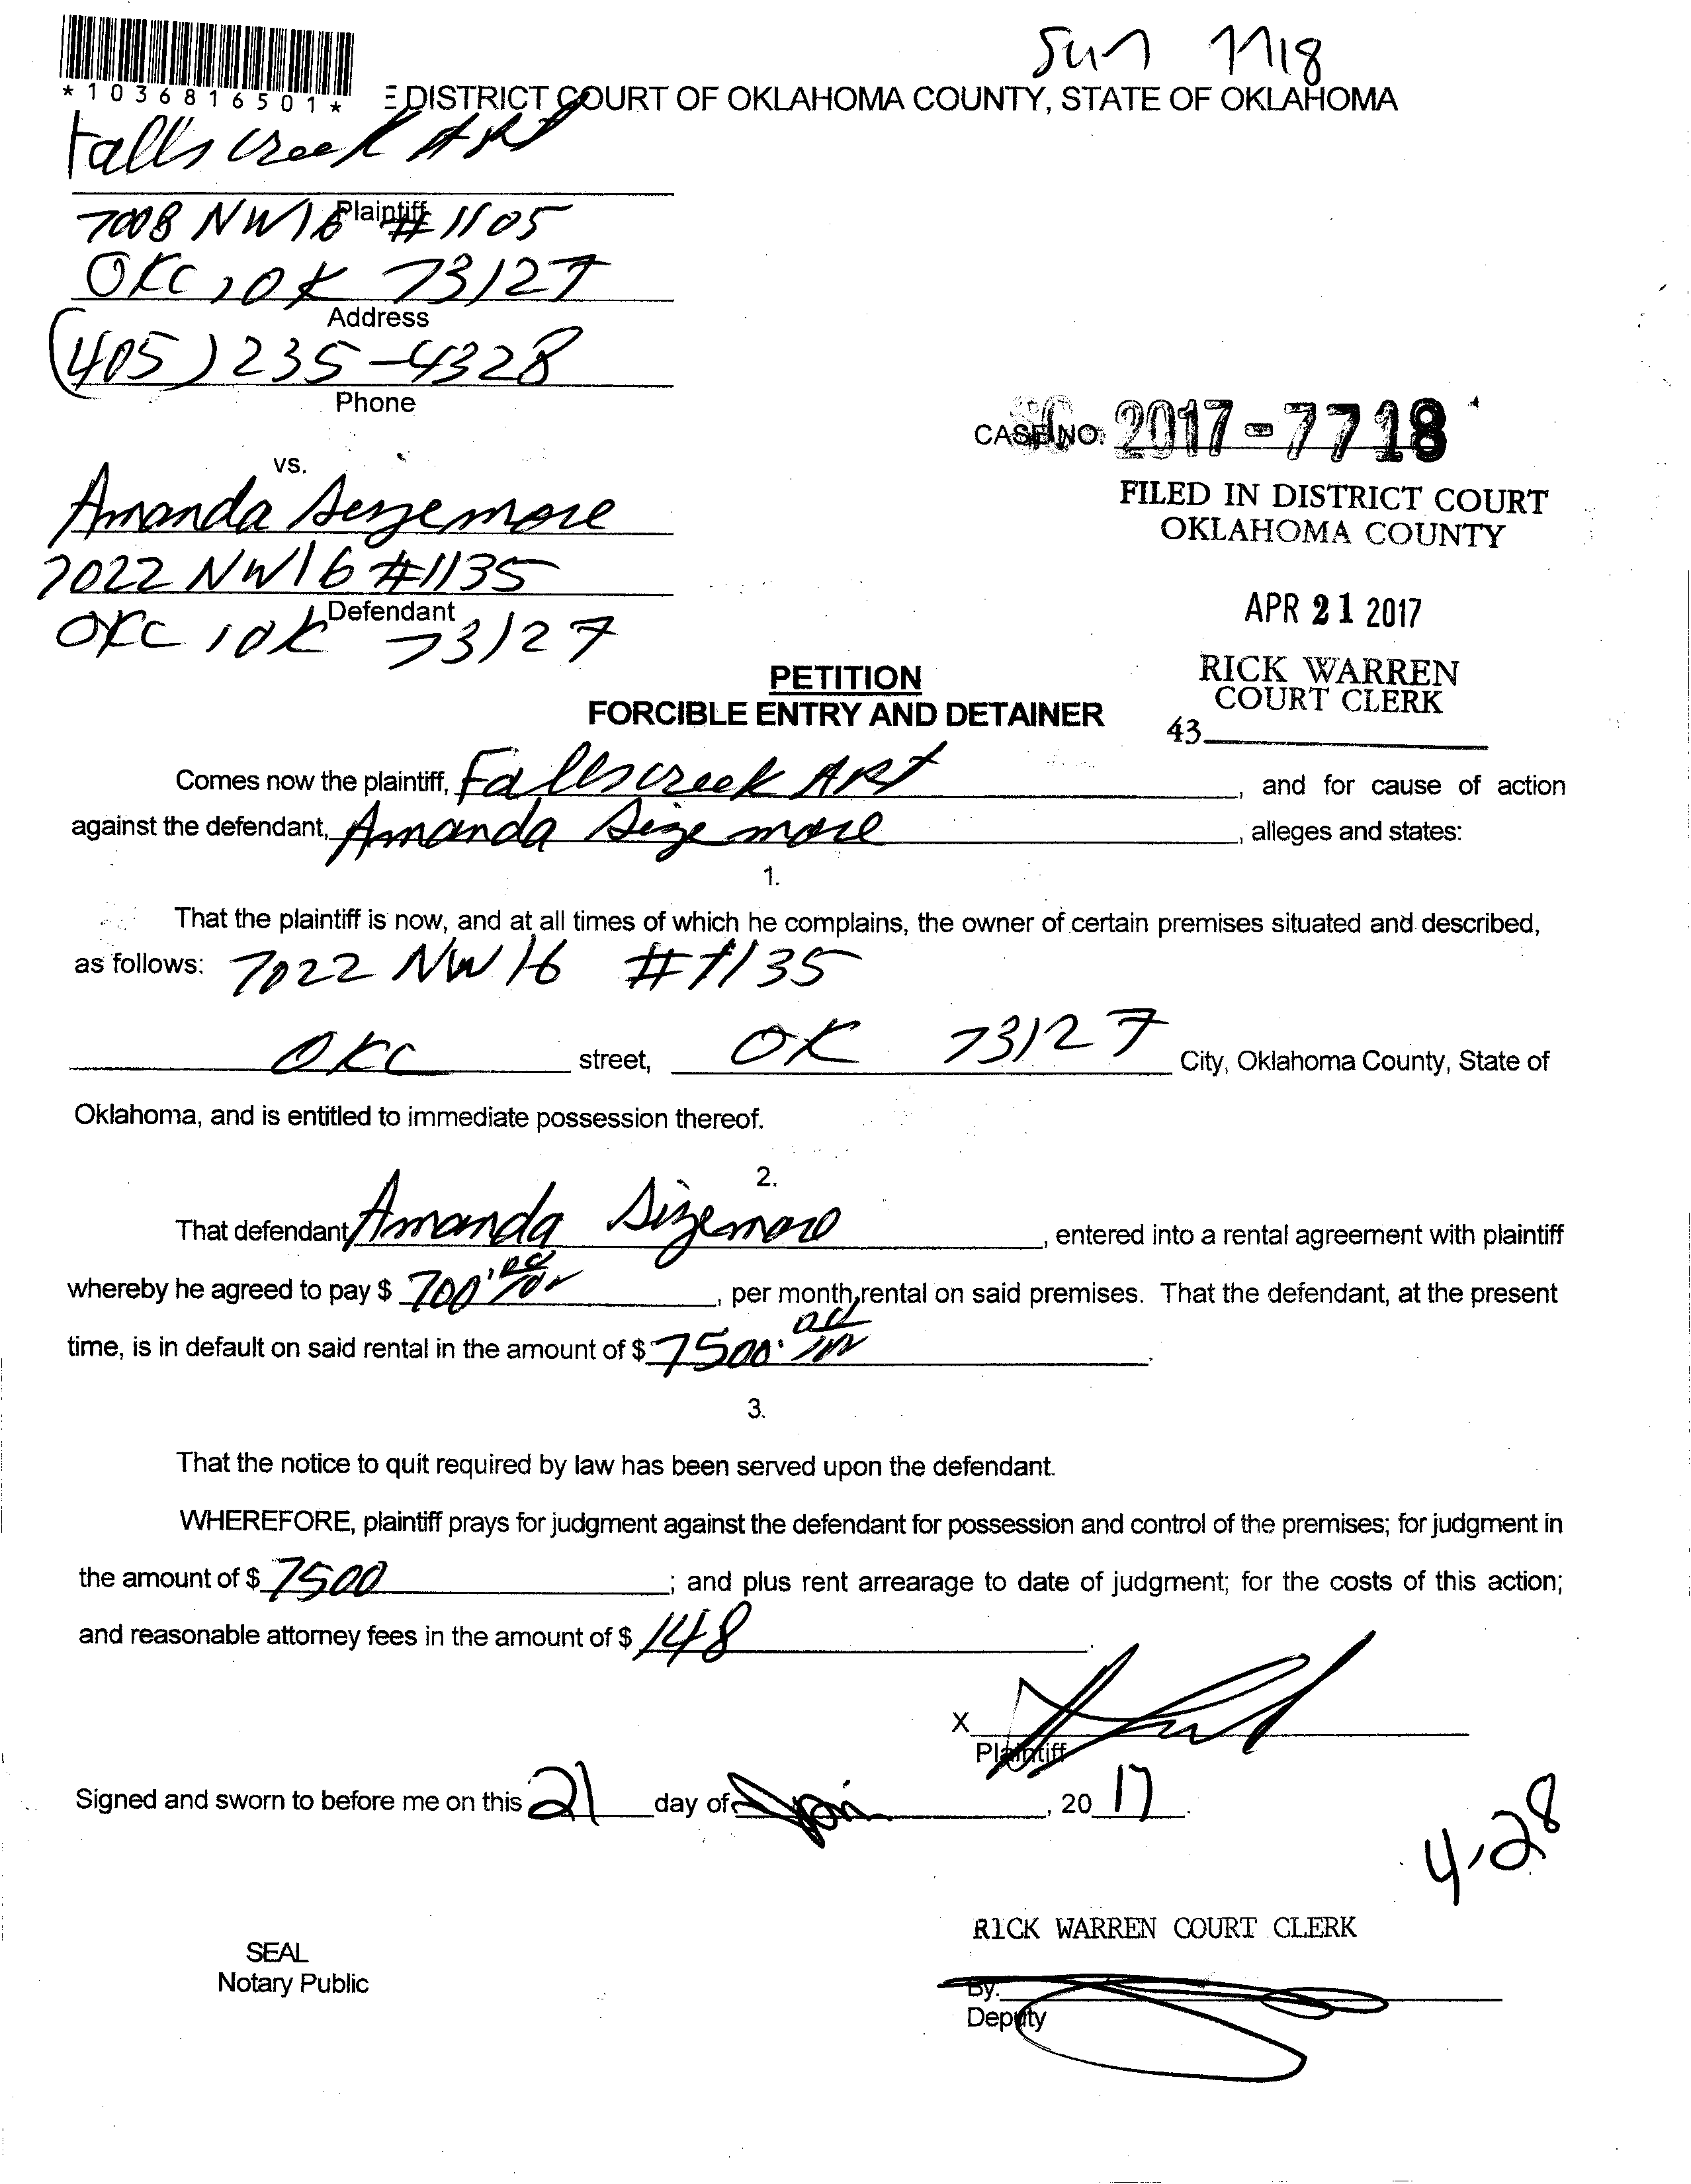 Sum 7718
*1036816501*
E DISTRICT COURT OF OKLAHOMA COUNTY, STATE OF OKLAHOMA
Falls creek Apt
Plaintiff
7008 NW 16 #1105
OKC, OK 73127
Address
(405) 235-4328
Phone
CASE NO. SC 2017-7718
vs.
FILED IN DISTRICT COURT
OKLAHOMA COUNTY
Amanda Sizemore
7022 NW 16 #1135
Defendant
OKC, OK 73127
APR 21 2017
RICK WARREN
COURT CLERK
43
PETITION
FORCIBLE ENTRY AND DETAINER
Comes now the plaintiff, Falls creek APT, and for cause of action
against the defendant, Amanda Sizemore, alleges and states:
1.
That the plaintiff is now, and at all times of which he complains, the owner of certain premises situated and described,
as follows: 7022 NW 16 #1135
OKC street, OK 73127 City, Oklahoma County, State of
Oklahoma, and is entitled to immediate possession thereof.
2.
That defendant Amanda Sizemore, entered into a rental agreement with plaintiff
whereby he agreed to pay $ 700.00, per month, rental on said premises. That the defendant, at the present
time, is in default on said rental in the amount of $ 7500.00.
3.
That the notice to quit required by law has been served upon the defendant.
WHEREFORE, plaintiff prays for judgment against the defendant for possession and control of the premises; for judgment in
the amount of $ 7500; and plus rent arrearage to date of judgment; for the costs of this action;
and reasonable attorney fees in the amount of $ 148.
X
Plaintiff
Signed and sworn to before me on this 21 day of, 2017.
4.28
RICK WARREN COURT CLERK
SEAL
Notary Public
By:
Deputy